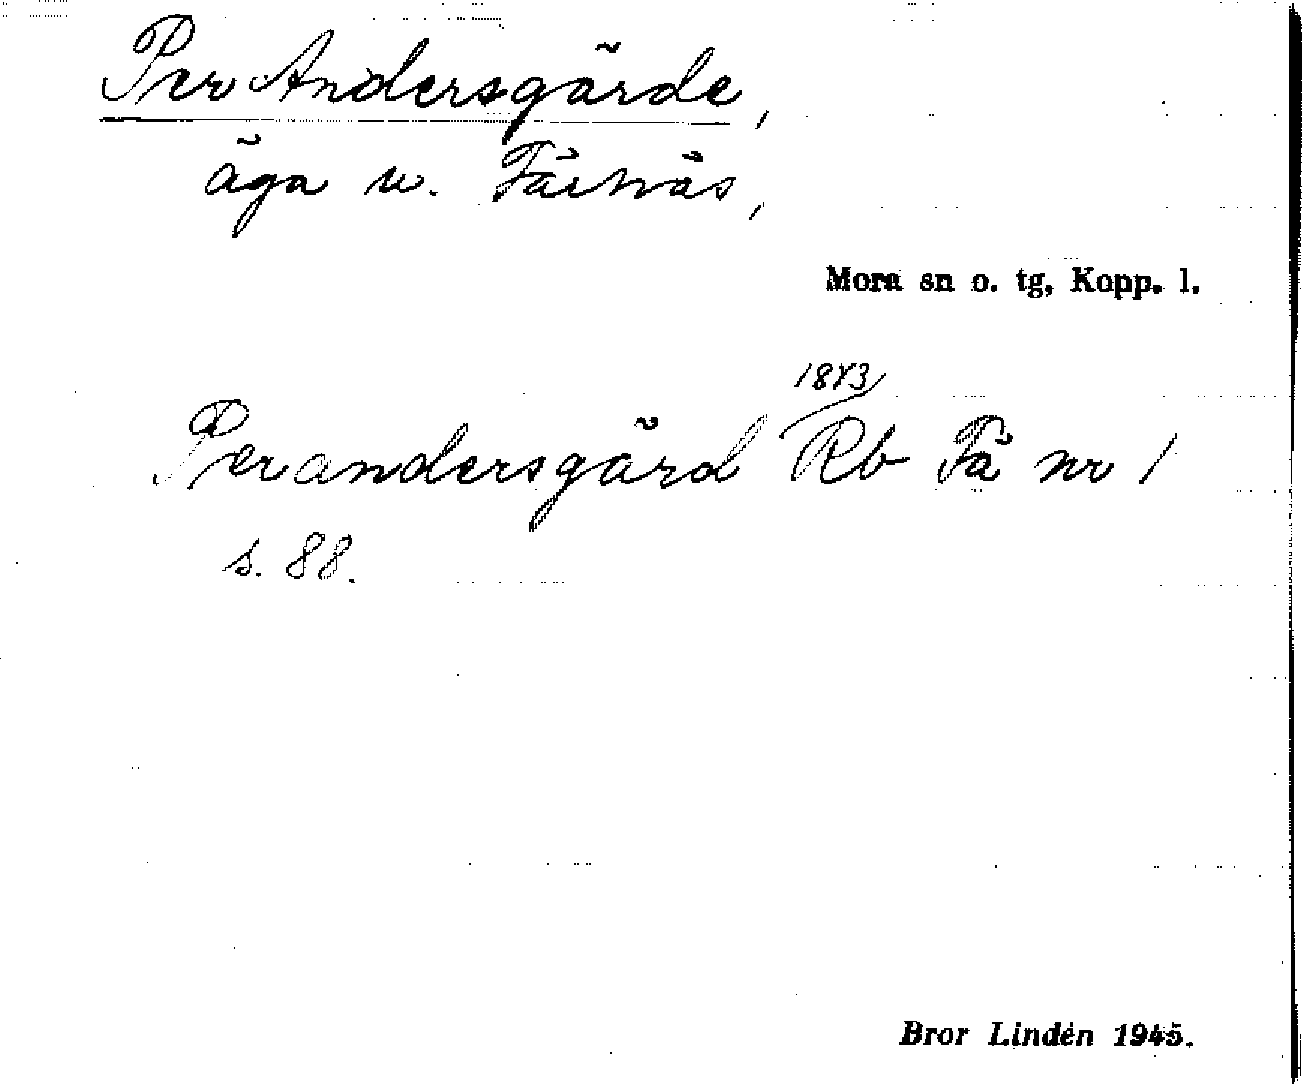 Per Andersgärde,
äga u. Färnäs,
Mora sn o. tg, Kopp. l.
1873
Perandersgärd Rb Fä nr 1
s. 88.
Bror Lindén 1945.